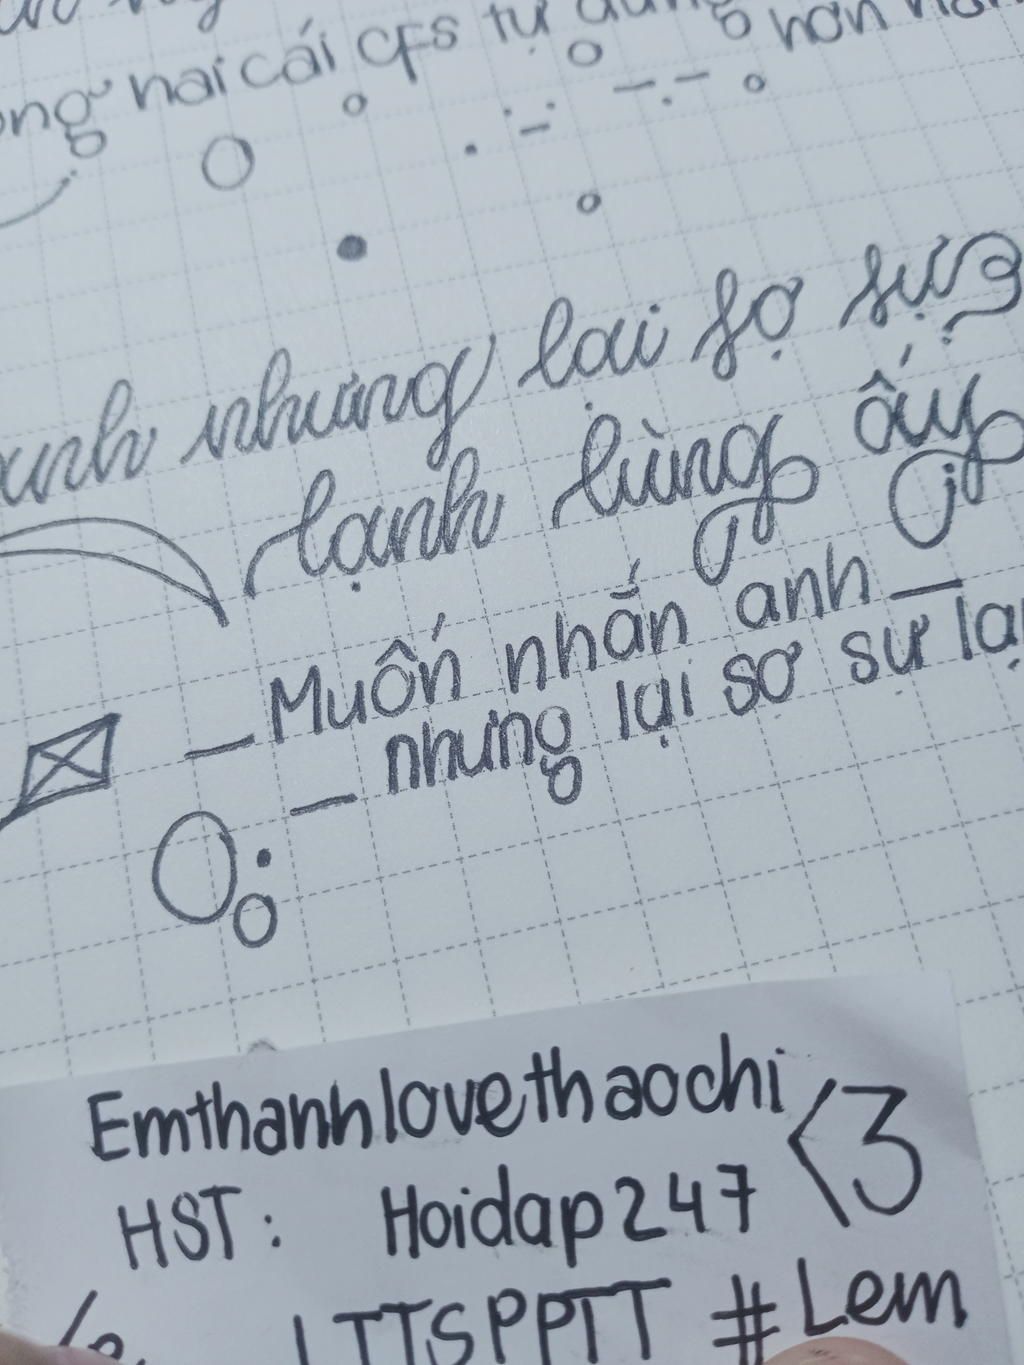 hai cái CFS tự hơn
nhưng lại sợ sự
lạnh lùng ấy
Muốn nhắn anh
nhưng lại sơ sự
Emthanhlovethaochi
HST: Hoidap247 <3
LTTSPPTT #Lem